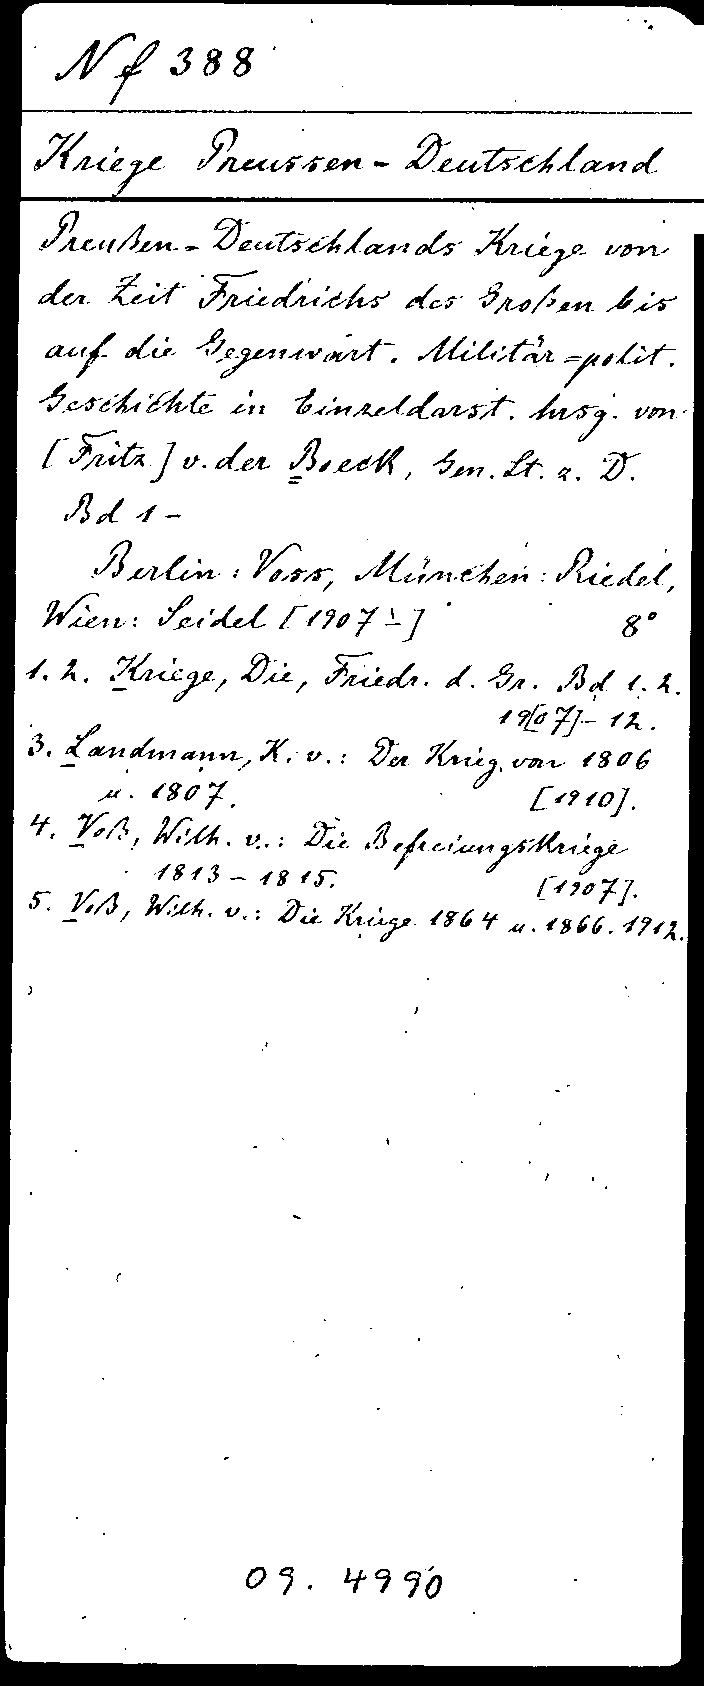 Nf 388
Kriege Preussen-Deutschland
Preußen-Deutschlands Kriege von
der Zeit Friedrichs des Großen bis
auf die Gegenwart. Militär=polit.
Geschichte in Einzeldarst. hrsg. von
[Fritz] v. der Boeck, Gen. Lt. z. D.
Bd 1-
Berlin: Voss, München: Riedel,
Wien: Seidel [1907-] 8°
1. 2. Kriege, Die, Friedr. d. Gr. Bd 1. 2.
19[07]-12.
3. Landmann, K. v.: Der Krieg von 1806
u. 1807. [1910].
4. Voß, Wilh. v.: Die Befreiungskriege
1813-1815. [1907].
5. Voß, Wilh. v.: Die Kriege 1864 u. 1866. 1912.
09. 4990